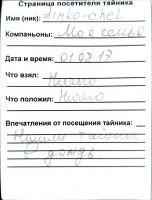 Страница посетителя тайника
Имя (ник): dimka-chel
Компаньоны: Моя семья
Дата и время: 01.08.17
Что взял: Ничего
Что положил: Ничего
Впечатления от посещения тайника:
Нашли тайник
дождь